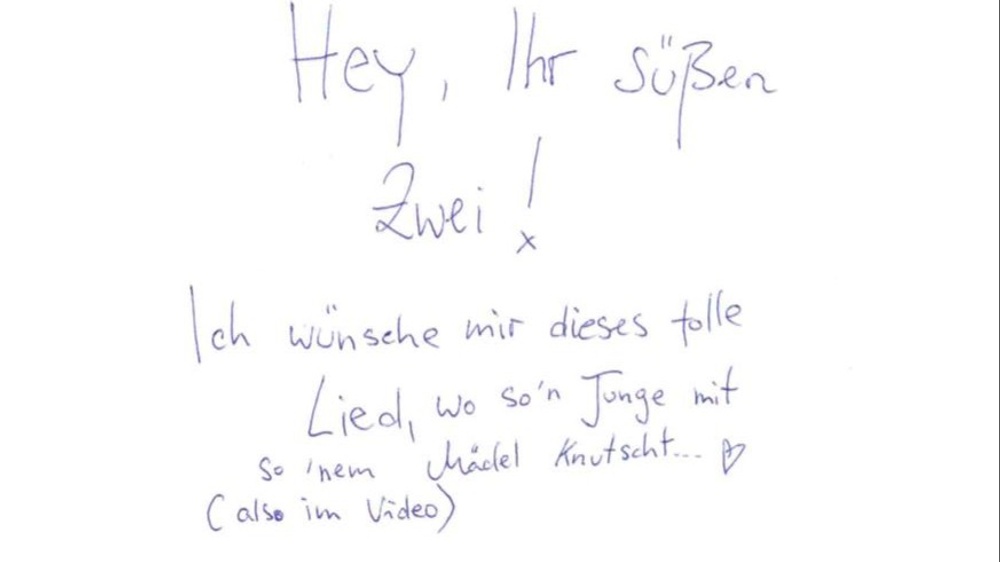 Hey, Ihr süßen
Zwei!
Ich wünsche mir dieses tolle
Lied, wo so'n Junge mit
so 'nem Mädel knutscht... ♡
(also im Video)